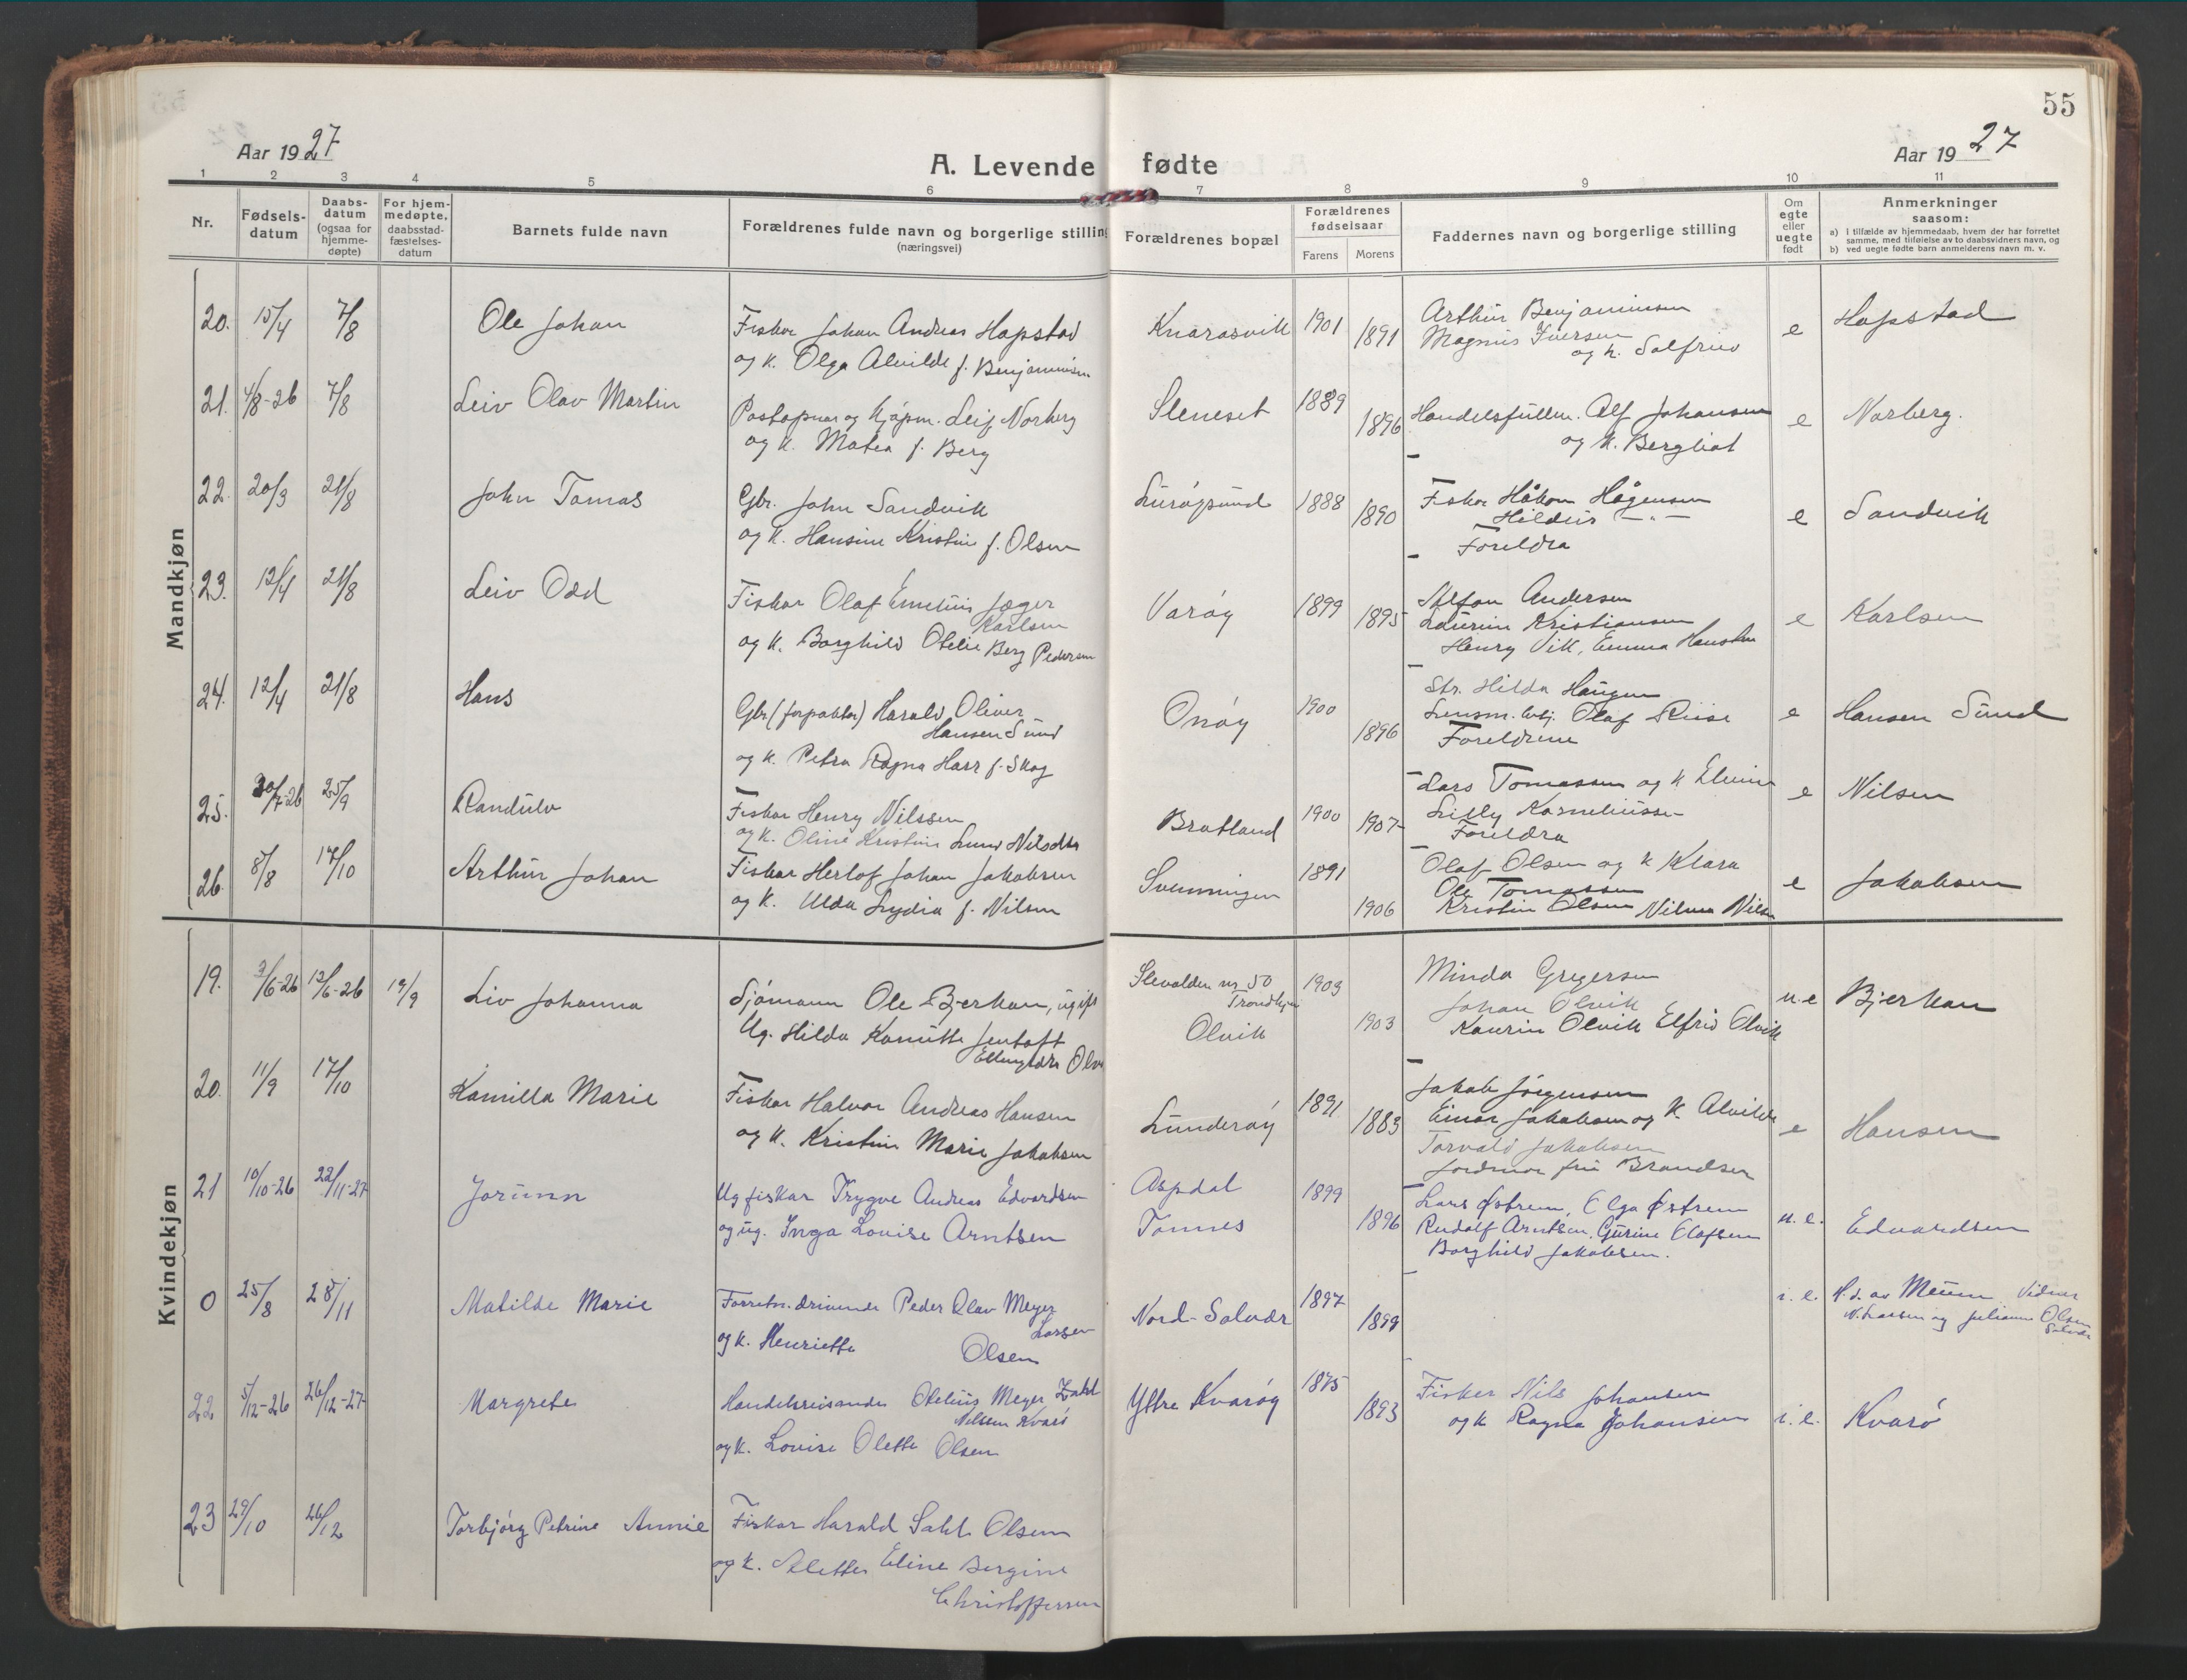 55
Aar 1927
A. Levende fødte
Aar 1927
1 2 3 4 5 6 7 8 9 10 11
Nr.
Fødsels-
datum
Daabs-
datum
(ogsaa for
hjemme-
døpte)
For hjem-
medøpte,
daabsstad-
fæstelses-
datum
Barnets fulde navn
Forældrenes fulde navn og borgerlige stilling
(næringsvei)
Forældrenes bopæl
Forældrenes
fødselsaar
Farens Morens
Faddernes navn og borgerlige stilling
Om
egte
eller
uegte
født
Anmerkninger
saasom:
a) i tilfælde av hjemmedaab, hvem der har forrettet
samme, med tilføielse av to daabsvidners navn, og
b) ved uegte fødte barn anmelderens navn m. v.
Mandkjøn
20. 15/4 7/8 Ole Johan
Fisker Johan Andreas Hapstad
og k. Olga Alvilde f. Benjaminsen
Knarasvik 1901 1891
Arthur Benjaminsen
Magnus Iversen
og k. Solfrid
e Hapstad
21. 4/8-26 7/8 Leiv Olav Martin
Postopnar og kjøpm. Leif Norberg
og k. Matea f. Berg
Sleneset 1889 1896
Handelsfullm. Alf Johansen
og k. Bergliot
e Norberg.
22. 20/3 21/8 John Tomas
Gbr. John Sandvik
og k. Hansine Kristine f. Olsen
Lurøysund 1888 1890
Fisker Håkon Hågensen
Hildur —„—
Foreldra
e Sandvik
23. 12/4 21/8 Leiv Odd
Fiskar Olaf Emelius Jæger
Karlsen
og k. Borghild Otelie Berg Pedersen
Varøy 1899 1895
Andersen
Laurine Kristiansen
Henry Vik, Emma
e Karlsen
24. 12/4 21/8 Hans
Gbr (forpakter) Harald Oliver
Hansen Sund
og k. Petra Ragna Harr f. Skog
Onøy 1900 1896
Str. Hilda Haugen
Lensm. Olaf Riise
Foreldrene
e Hansen Sund
25. 30/7-26 25/9 Randulv
Fiskar Henry Nilssen
og k. Oline Kristine Lund Nilsdtr
Bratland 1900 1907
Lars Tomassen og k
Lilly Korneliussen
Foreldra
e Nilsen
26. 8/8 17/10 Arthur Johan
Fiskar Herlof Johan Jakobsen
og k. Alda Lydia f. Nilsen
Svenningen 1891 1906
Olaf Olsen og k Klara
Ole Tomassen
Kristin Olsen Nilsen
e Jakobsen
Kvindekjøn
19. 3/6-26 12/6-26 19/9 Liv Johanna
Sjømann Ole Bjerkan, ugift
Ug. Hilda Kamitte Jentoft
Ellingsdtr
nr 50
Trondhjem
Olvik
1903 1903
Minda Gregersen
Johan Olvik
Kaurin Olvik Elfrid Olvik
u.e Bjerkan
20. 11/9 17/10 Kamilla Marie
Fiskar Halvor Andreas Hansen
og k. Kristine Marie Jakobsen
Lunderøy 1891 1883
Jakob Jørgensen
Einar Jakobsen og k Alvilde
Torvald Jakobsen
Jordmor fru Brandser
e Hansen
21 10/10-26 22/11-27 Jorunn
Ug fiskar Trygve Andreas Edvardsen
og ug. Inga Lovise Arntsen
Aspdal
Tonnes
1899 1896
Lars Østrem, Olga Østrem
Rudolf Arntsen, Gurine Olafsen
Borghild Jakobsen.
u. e. Edvardsen
0 25/8 28/11 Matilde Marie
Forretn. drivende Peder Olav Meyer
Larsen
og k. Henriette Olsen
Nord-Solvær 1897 1899
i. e. H.d. av Vidner
N. Larsen og Juliane Olsen
Solvær
22 5/12-26 26/12-27 Margrete
Handelsreisande Otelius Meyer Zahl
Nilssen Kvarø
og k. Lovise Olette Olsen
Yttre Kvarøy 1875 1893
Fisker Nils Johansen
og k Ragna Johansen
i. e. Kvarø
23 29/10 26/12 Torbjørg Petrine Annie
Fiskar Harald Olsen
og k. Aletter Eline Bergine
Christoffersen